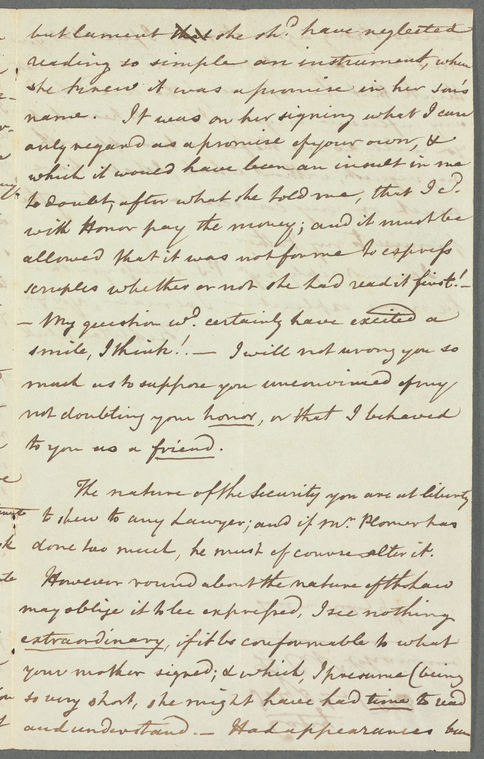 but lament that she shd. have neglected
reading so simple an instrument, when
she knew it was a promise in her son's
name. It was on her signing what I can
only regard as a promise of your own, &
which it would have been an insult in me
to doubt, after what she told me, that I cd.
with Honor pay the money; and it must be
allowed that it was not for me to express
scruples whether or not she had read it first!-
- My question wd. certainly have excited a
smile, I think! - I will not wrong you so
much as to suppose you unconvinced of my
not doubting your honor, or that I behaved
to you as a friend.
The nature of the Security you are at liberty
to shew to any Lawyer; and if Mr. Plomer has
done too much, he must of course alter it.
However round about the nature of the Law
may oblige it to be expressed, I see nothing
extraordinary, if it be conformable to what
your mother signed; & which, I presume (being
so very short, she might have had time to read
and understand. - Had appearances been